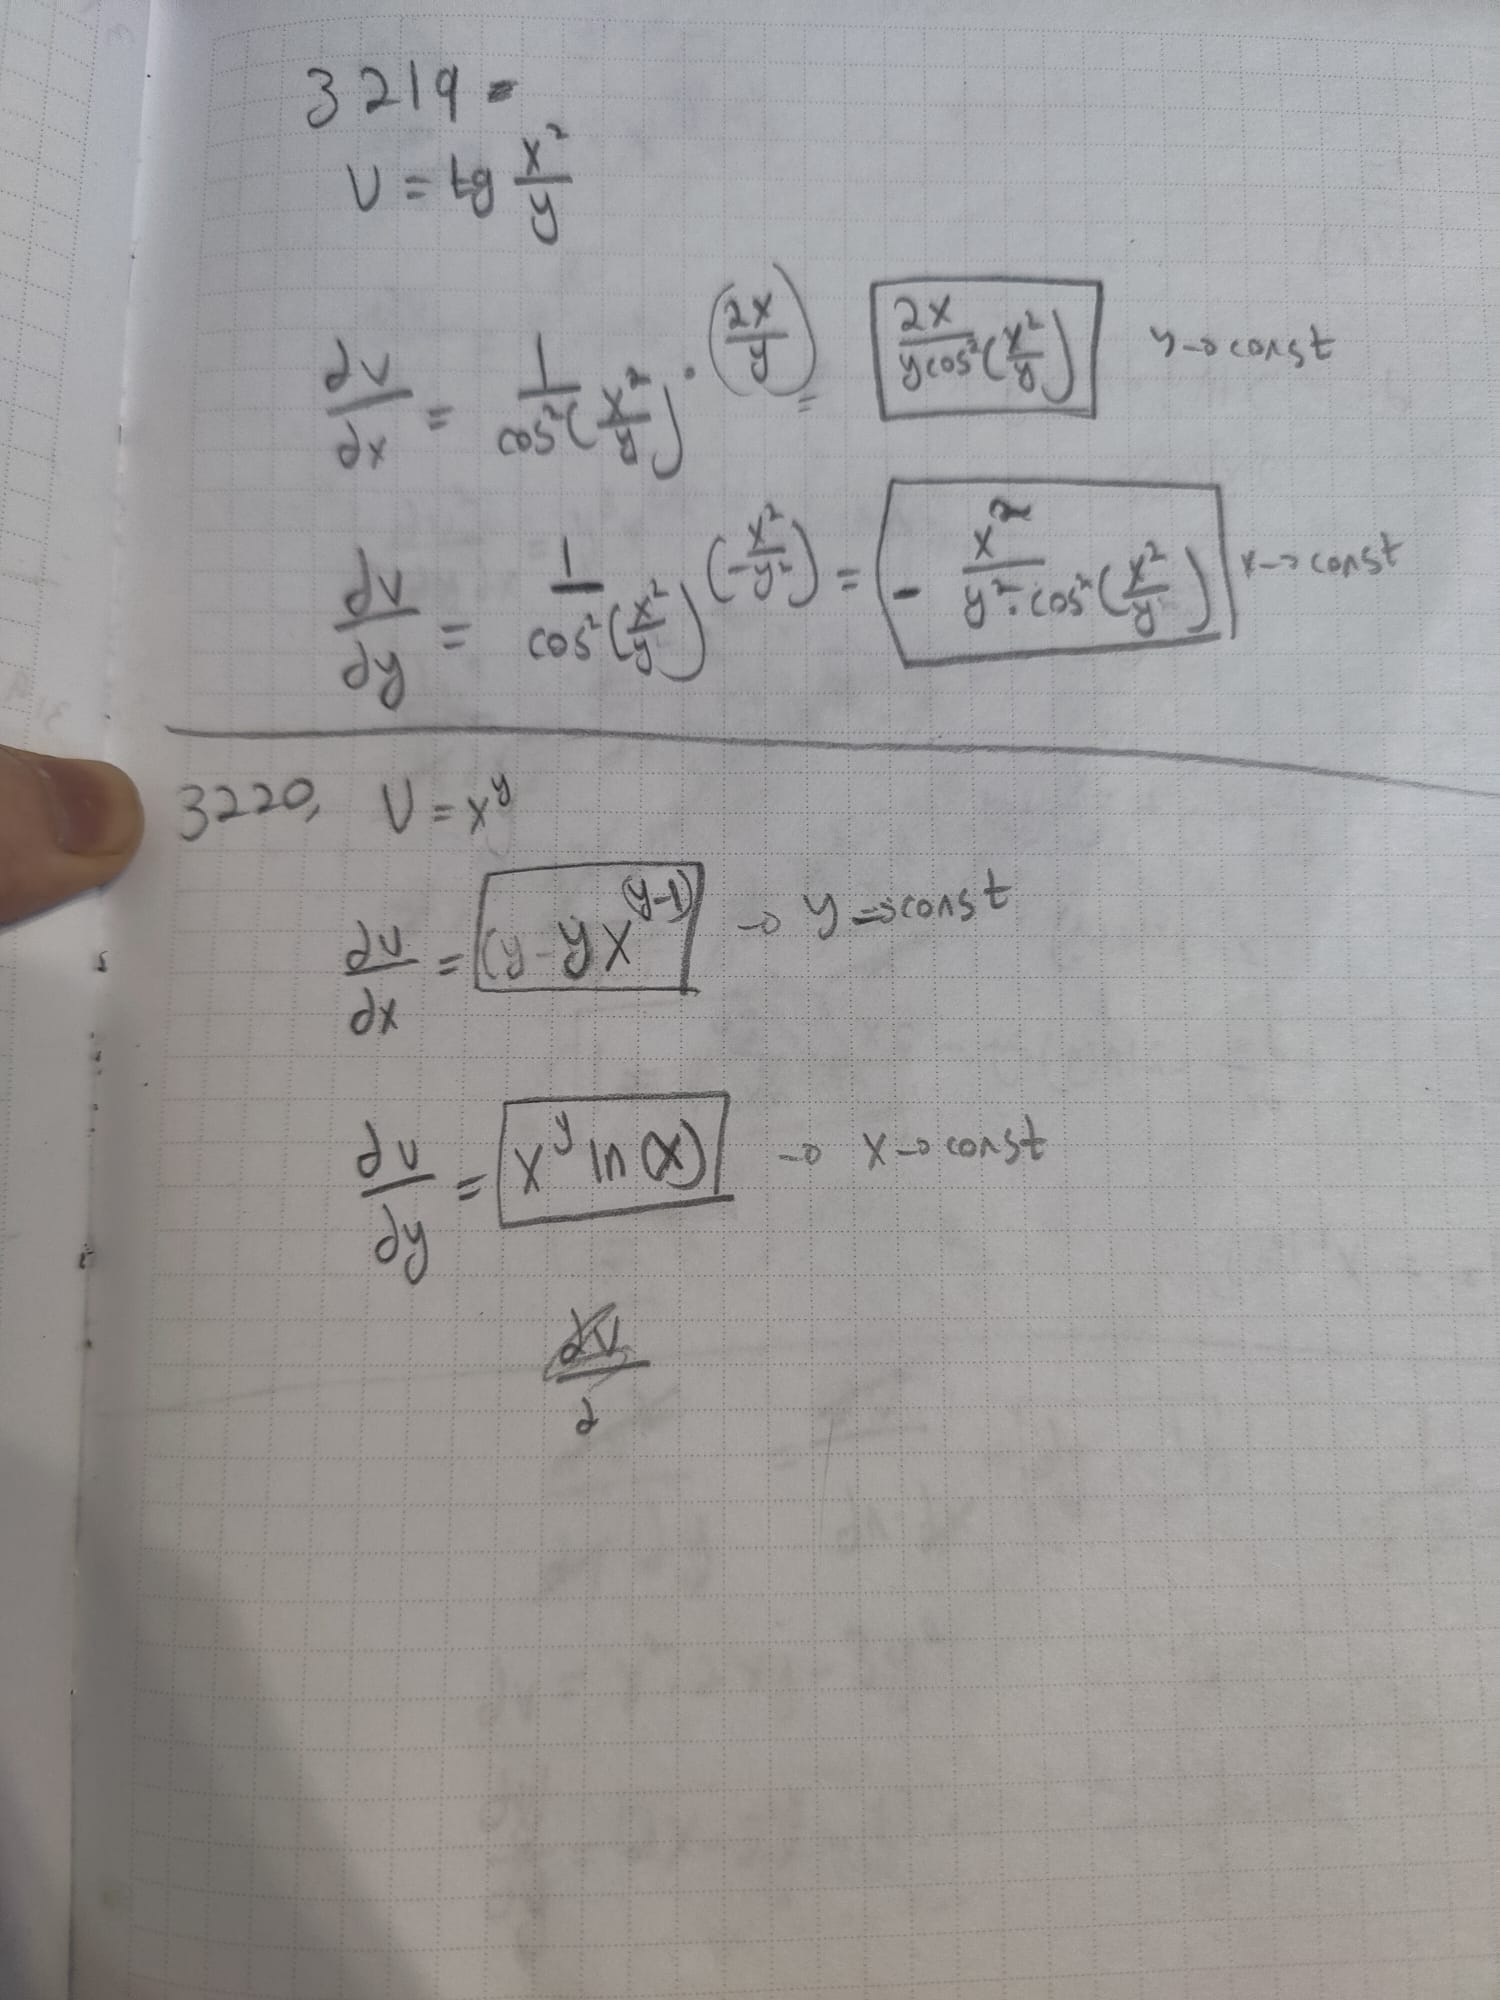 3219-
U = tg x²/y
∂u/∂x = 1/cos²(x²/y) · (2x/y) = 2x/ycos²(x²/y) y→const
∂u/∂y = 1/cos²(x²/y) (-x²/y²) = - x²/y²·cos²(x²/y) x→const
3220, U = x^y
∂u/∂x = (y-yx^(y-1) → y⇒const
∂u/∂y = x^y ln(x) → x→const
∂u/∂